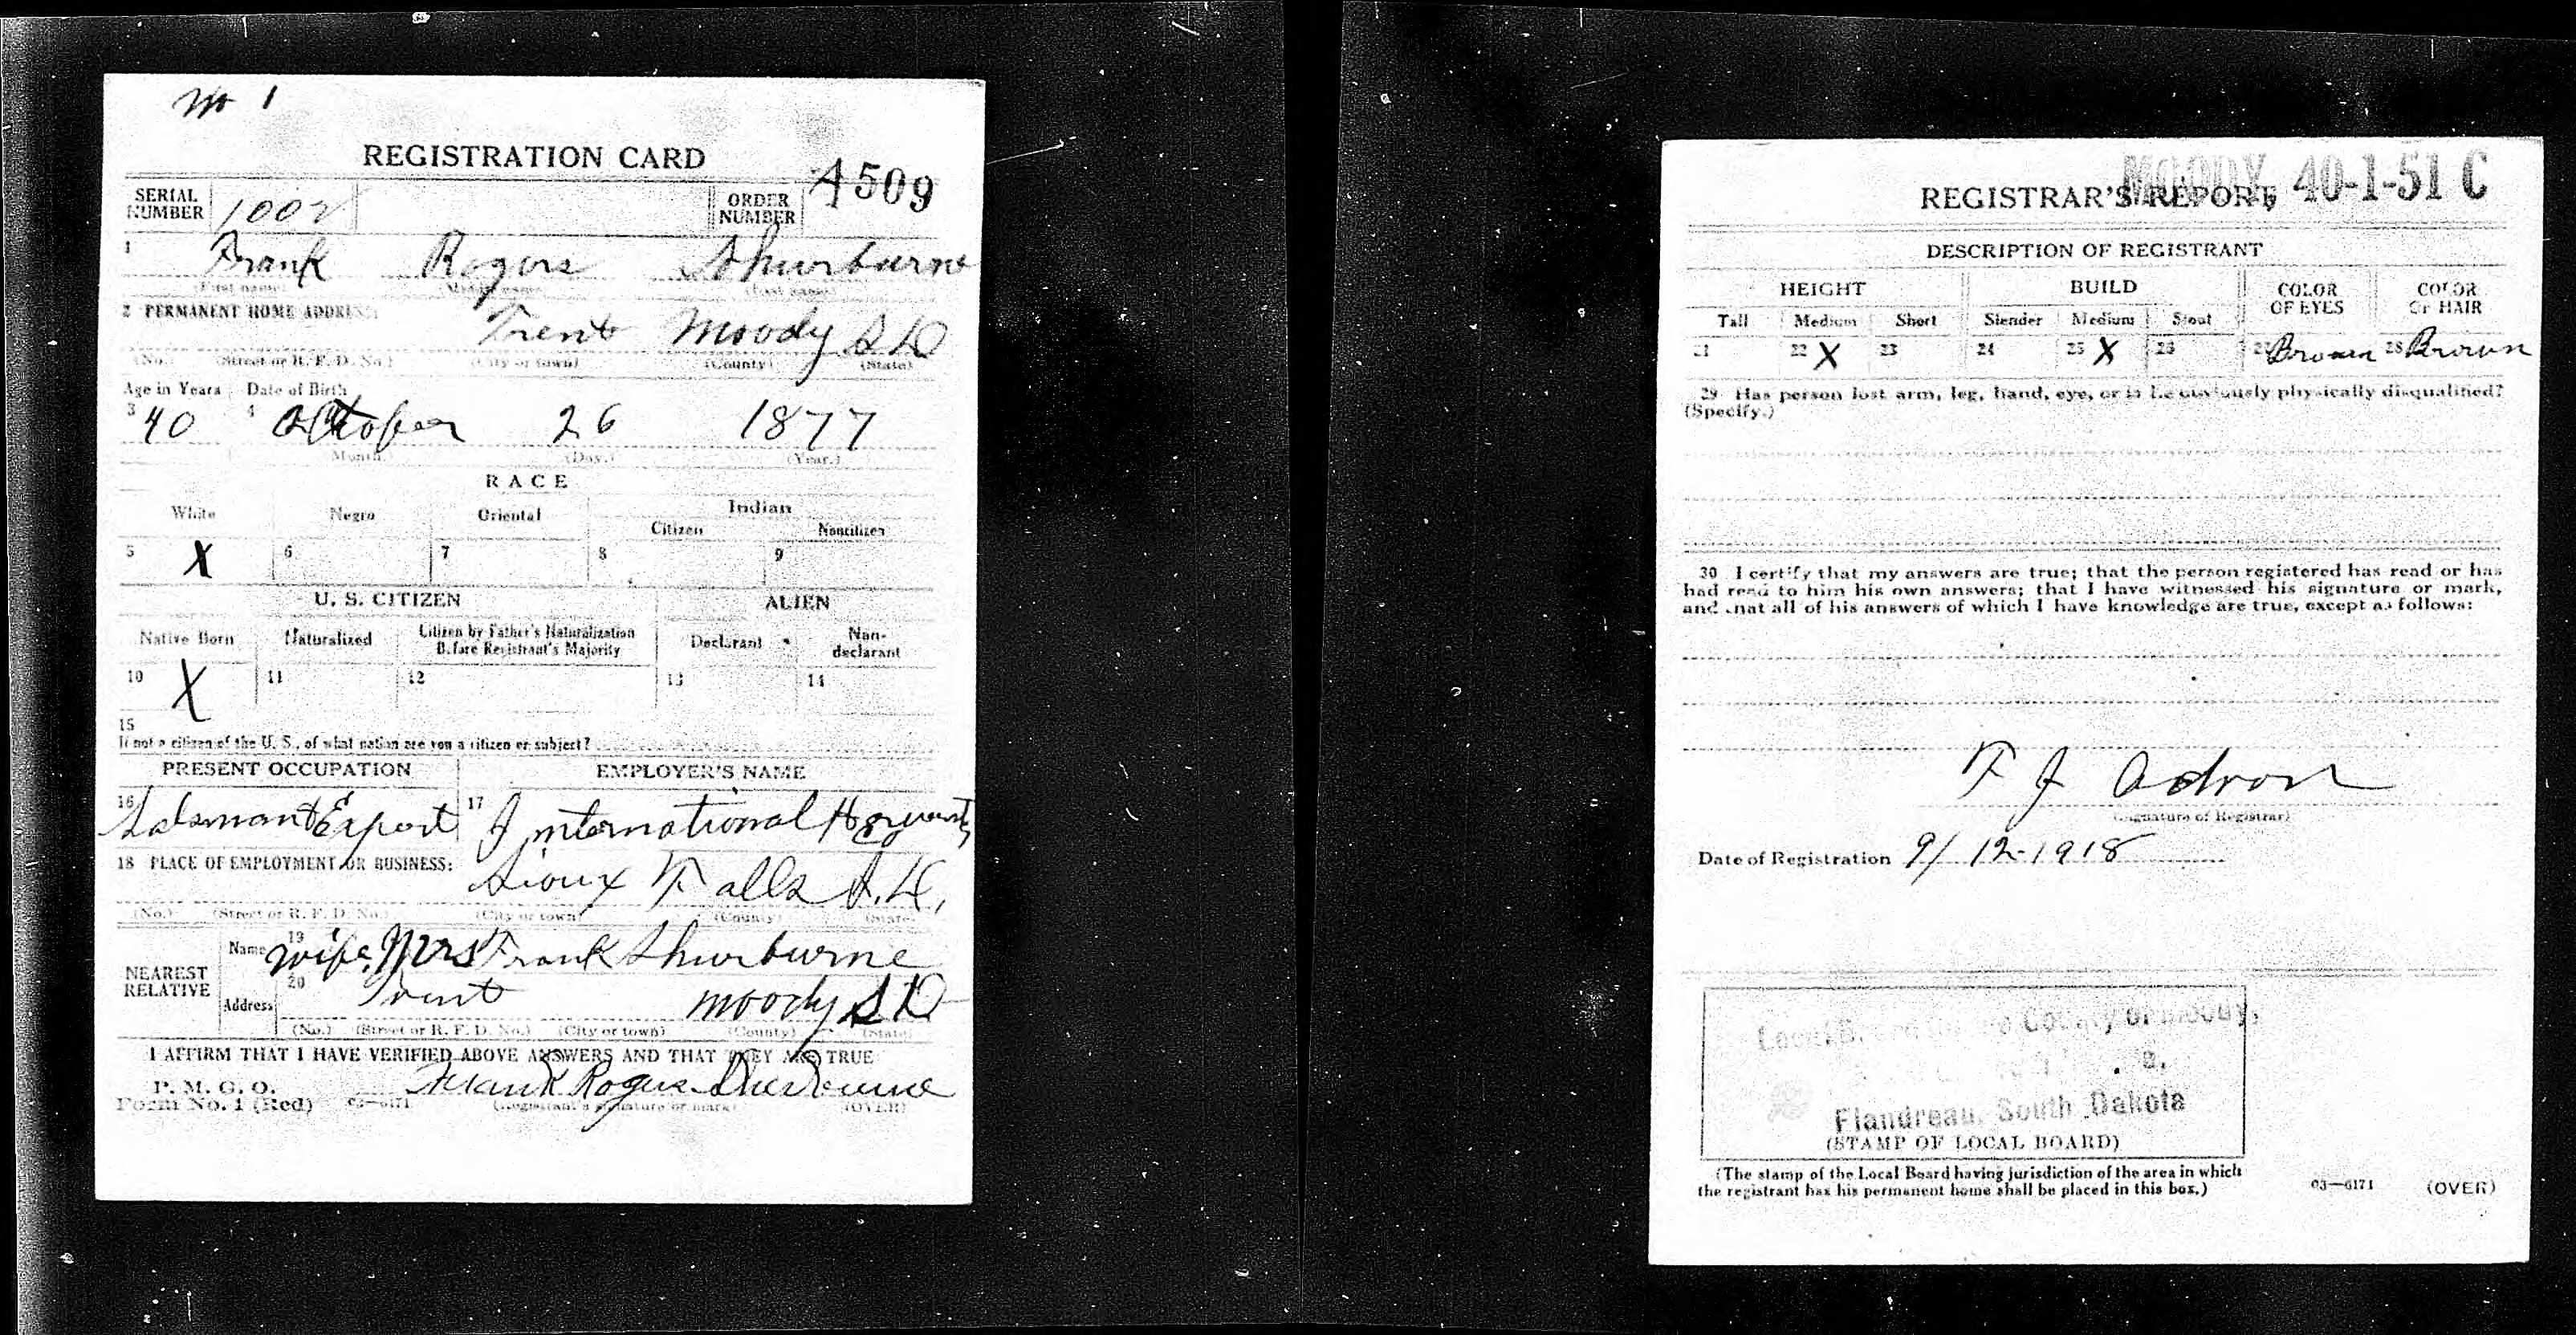 No 1
REGISTRATION CARD
SERIAL NUMBER 1002 ORDER NUMBER A509
1 Frank Rogers Shurburne
(First name) (Middle name) (Last name)
2 PERMANENT HOME ADDRESS: Trent Moody S D
(No.) (Street or R. F. D. No.) (City or town) (County) (State)
Age in Years Date of Birth
3 40 4 October 26 1877
(Month.) (Day.) (Year.)
RACE
White Negro Oriental Indian
Citizen Noncitizen
5 X 6 7 8 9
U. S. CITIZEN ALIEN
Native Born Naturalized Citizen by Father's Naturalization Before Registrant's Majority Declarant Non-declarant
10 X 11 12 13 14
15
If not a citizen of the U. S., of what nation are you a citizen or subject?
PRESENT OCCUPATION EMPLOYER'S NAME
16 Salsman & Expert 17 International Co
18 PLACE OF EMPLOYMENT OR BUSINESS: Sioux Falls S.D,
(No.) (Street or R. F. D. No.) (City or town) (County) (State)
NEAREST RELATIVE Name 19 wife, Mrs Frank Shurburne
Address 20 Trent Moody S D
(No.) (Street or R. F. D. No.) (City or town) (County) (State)
I AFFIRM THAT I HAVE VERIFIED ABOVE ANSWERS AND THAT THEY ARE TRUE
P. M. G. O.
Form No. 1 (Red) 03—6171 Frank Rogers Sherburne
(Registrant's signature or mark) (OVER)
MOODY 40-1-51 C
REGISTRAR'S REPORT
DESCRIPTION OF REGISTRANT
HEIGHT BUILD COLOR OF EYES COLOR OF HAIR
Tall Medium Short Slender Medium Stout
21 22 X 23 24 25 X 26 27 Brown 28 Brown
29 Has person lost arm, leg, hand, eye, or is he obviously physically disqualified?
(Specify.)
30 I certify that my answers are true; that the person registered has read or has
had read to him his own answers; that I have witnessed his signature or mark,
and that all of his answers of which I have knowledge are true, except as follows:
F J Adron
(Signature of Registrar)
Date of Registration 9/12-1918
Local Board County of Moody,
Flandreau, South Dakota
(STAMP OF LOCAL BOARD)
(The stamp of the Local Board having jurisdiction of the area in which
the registrant has his permanent home shall be placed in this box.)
03—6171 (OVER)